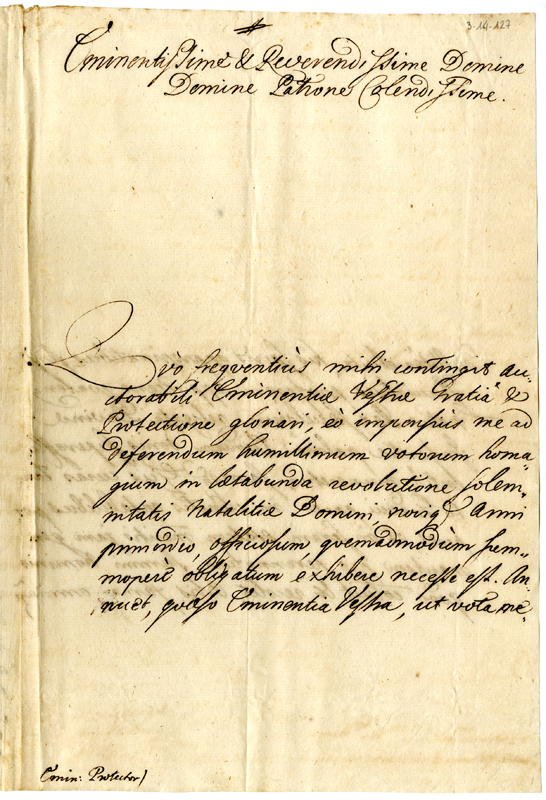 3-14-127
Eminentissime & Reverendissime Domine
Domine Patrone Colendissime.
Qvò freqventiùs mihi contingit au-
ctorabili Eminentiæ Vestræ Gratiâ &
Protectione gloriari, eò impensiùs me ad
deferendum humillimum votorum homa-
gium in lætabunda revolutione solem-
nitatis Natalitiæ Domini, noviq Anni
primordio, officiosum qvemadmodùm sem-
moperè obligatum exhibere necesse est. An-
nuet, qvæso Eminentia Vestra, ut vota me-
Emin: Protector)